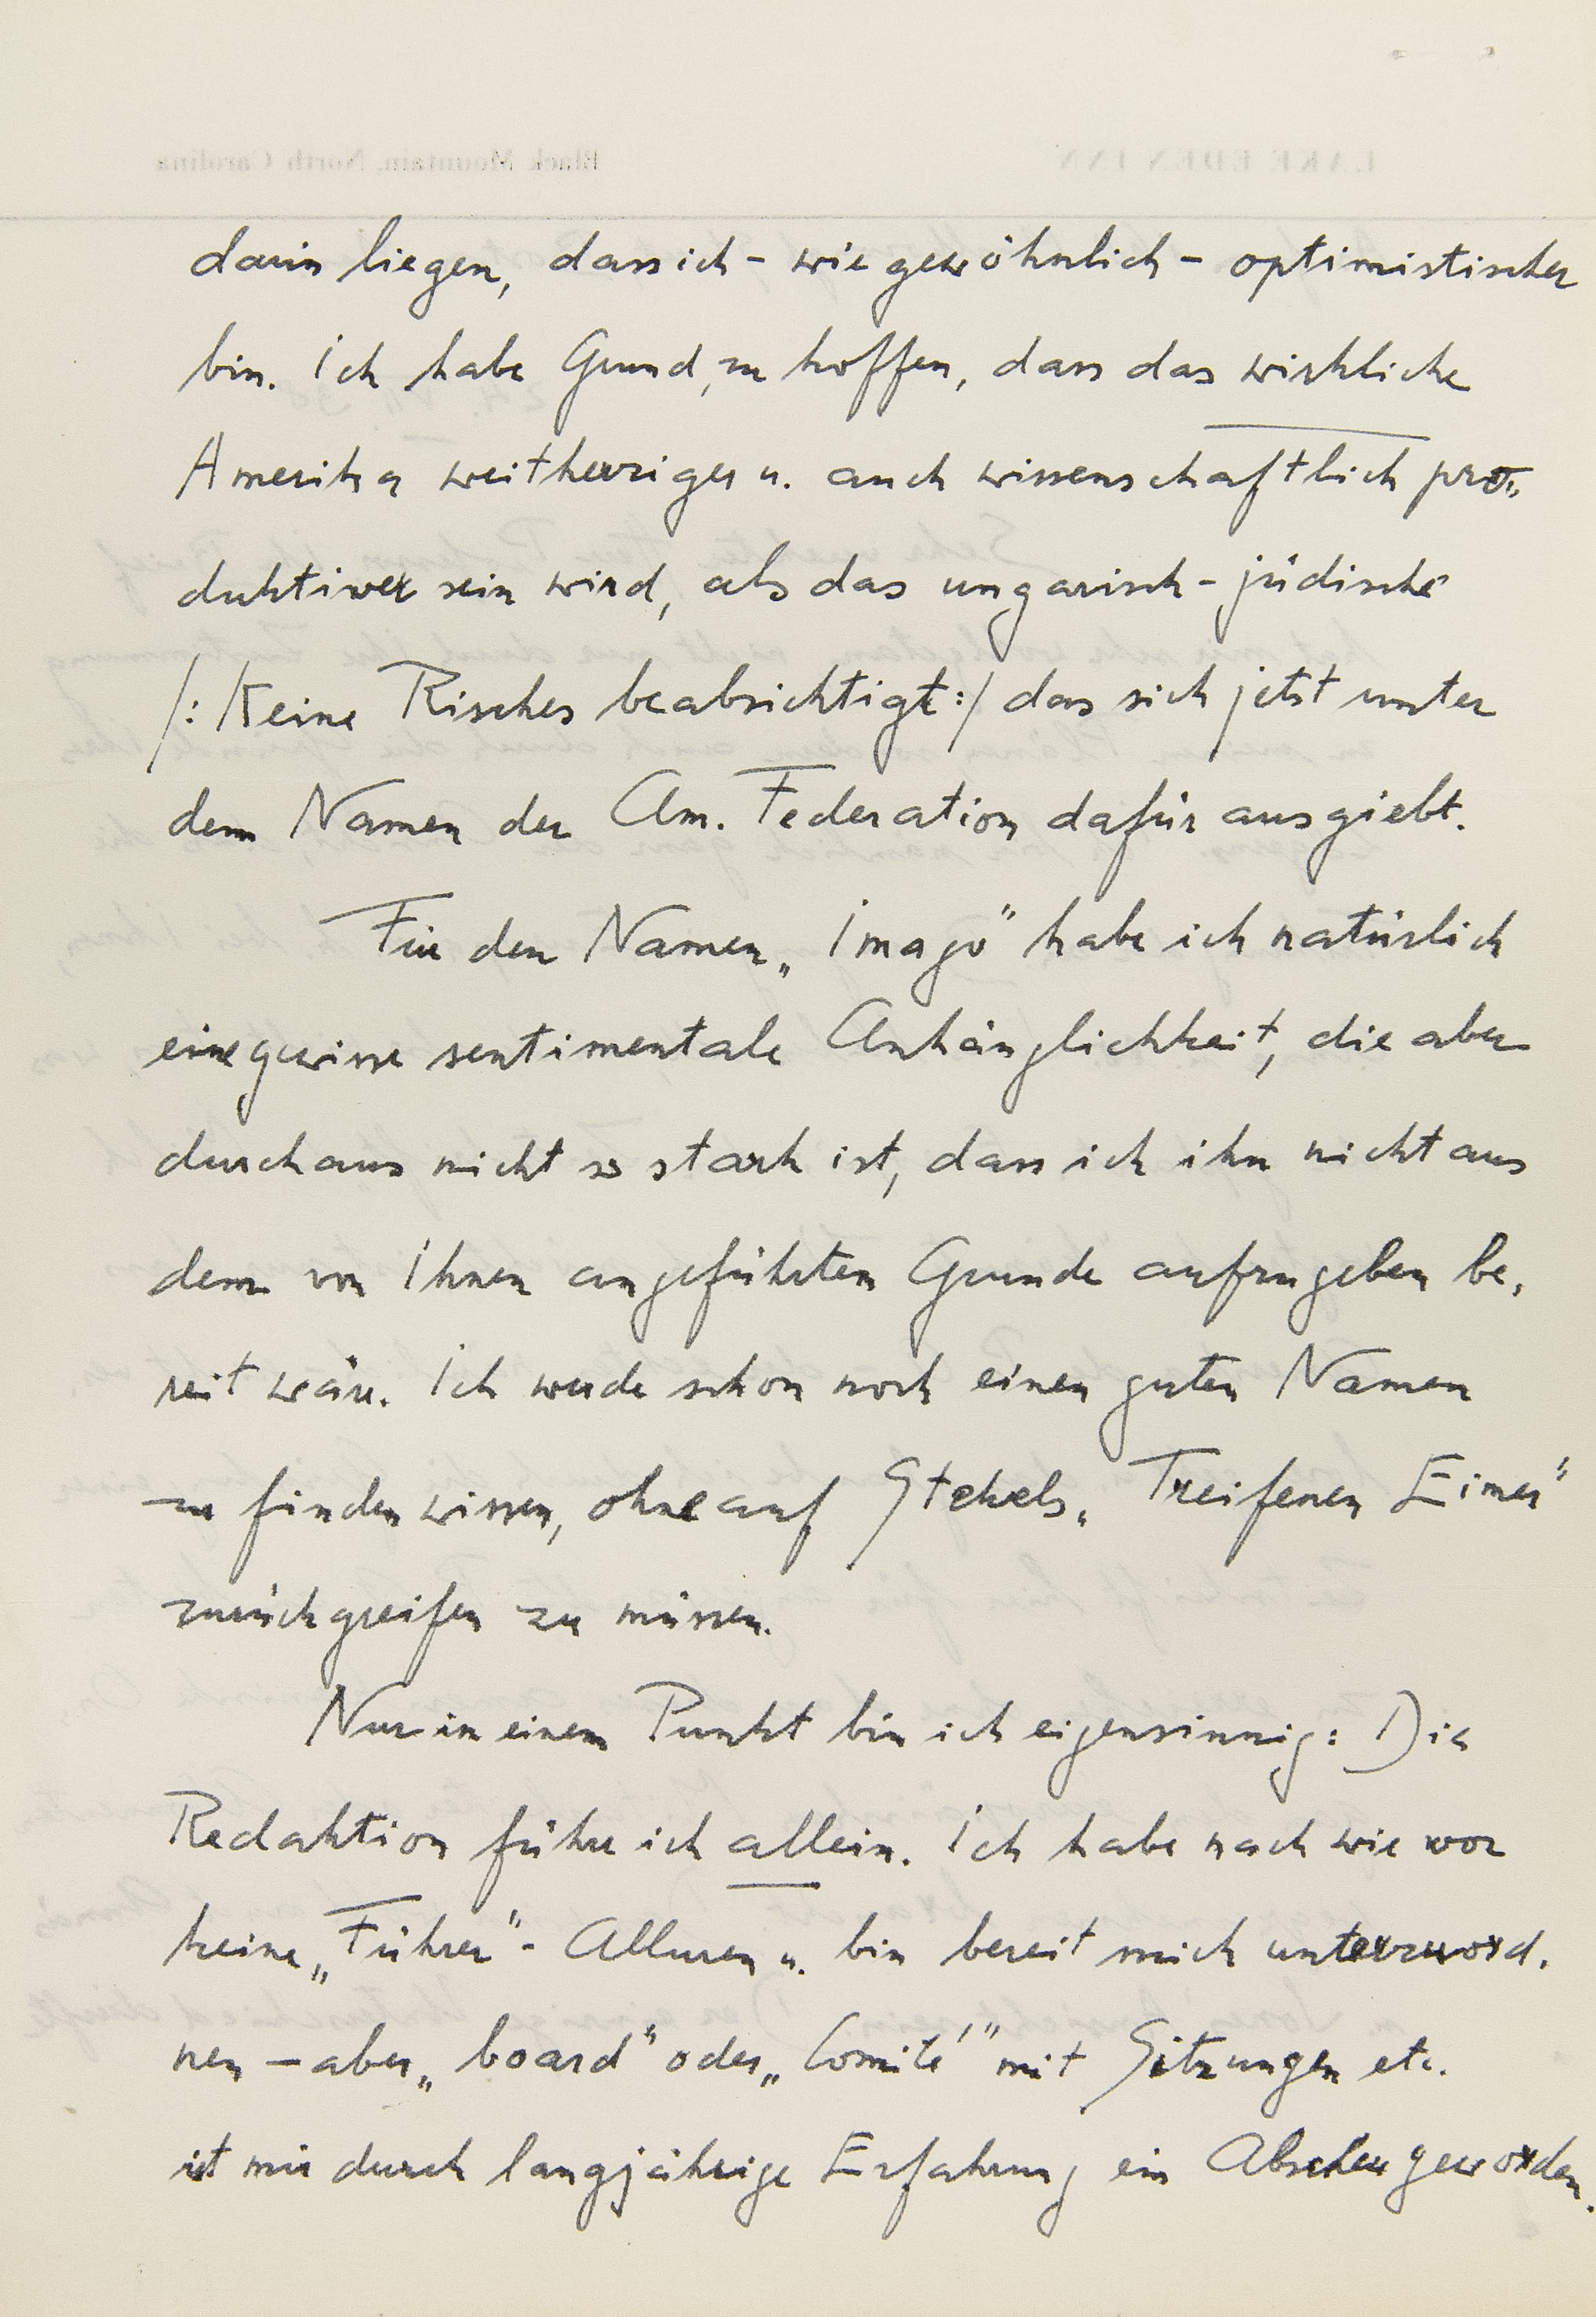 Black Mountain, North Carolina LAKE EDEN INN
darin liegen, dass ich - wie gewöhnlich - optimistischer
bin. Ich habe Grund, zu hoffen, dass das wirkliche
Amerika weitherziger u. auch wissenschaftlich pro-
duktiver sein wird, als das ungarisch-jüdische
/: Keine Risches beabsichtigt :/ das sich jetzt unter
dem Namen der Am. Federation dafür ausgiebt.
Für den Namen „Imago" habe ich natürlich
eine gewisse sentimentale Anhänglichkeit, die aber
durchaus nicht so stark ist, dass ich ihn nicht aus
dem von Ihnen angeführten Grunde aufzugeben be-
reit wäre. Ich werde schon noch einen guten Namen
zu finden wissen, ohne auf Stekels „Treifenen Eimer"
zurückgreifen zu müssen.
Nur in einem Punkt bin ich eigensinnig: Die
Redaktion führe ich allein. Ich habe nach wie vor
keine „Führer"- Alluren u. bin bereit mich unterzuord-
nen – aber „board" oder „Comité" mit Sitzungen etc.
ist mir durch langjährige Erfahrung ein Abscheu geworden.